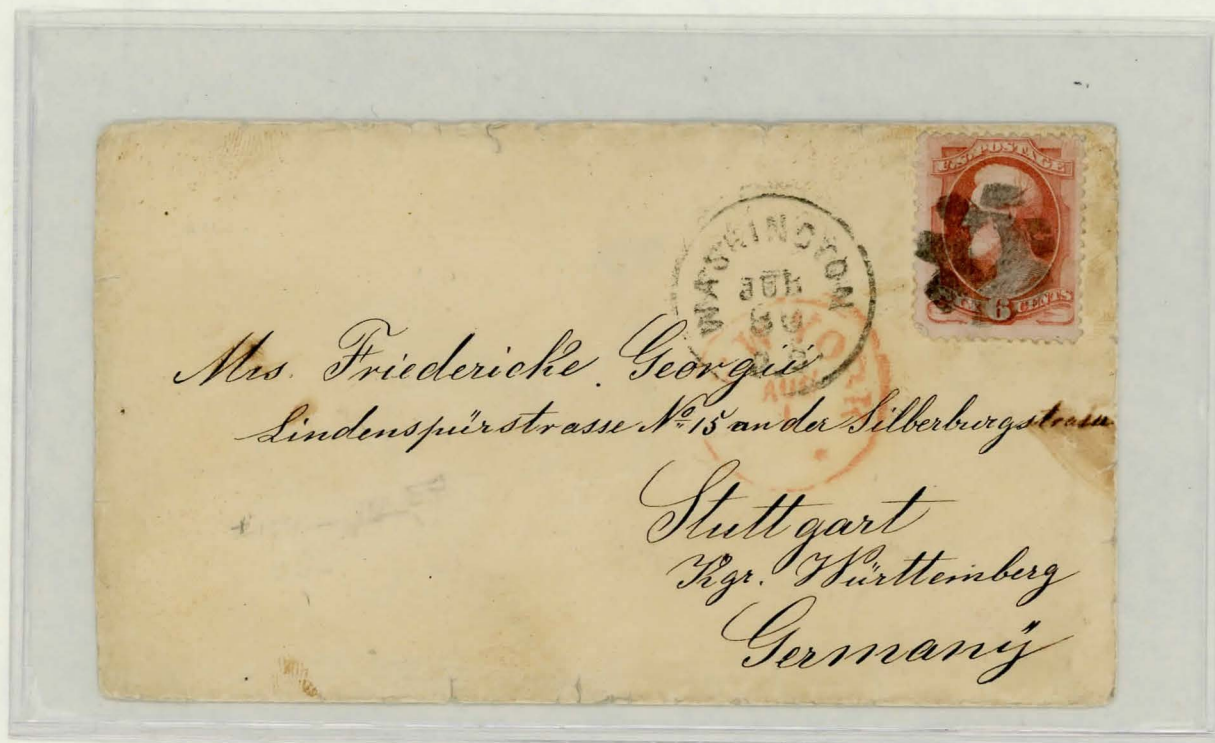 U.S. POSTAGE
SIX 6 CENTS
WASHINGTON
NEW YORK
AUG
Mrs. Friedericke Georgii
Lindenspürstrasse No. 15 an der Silberburgstrasse
Stuttgart
Kgr. Württemberg
Germanÿ